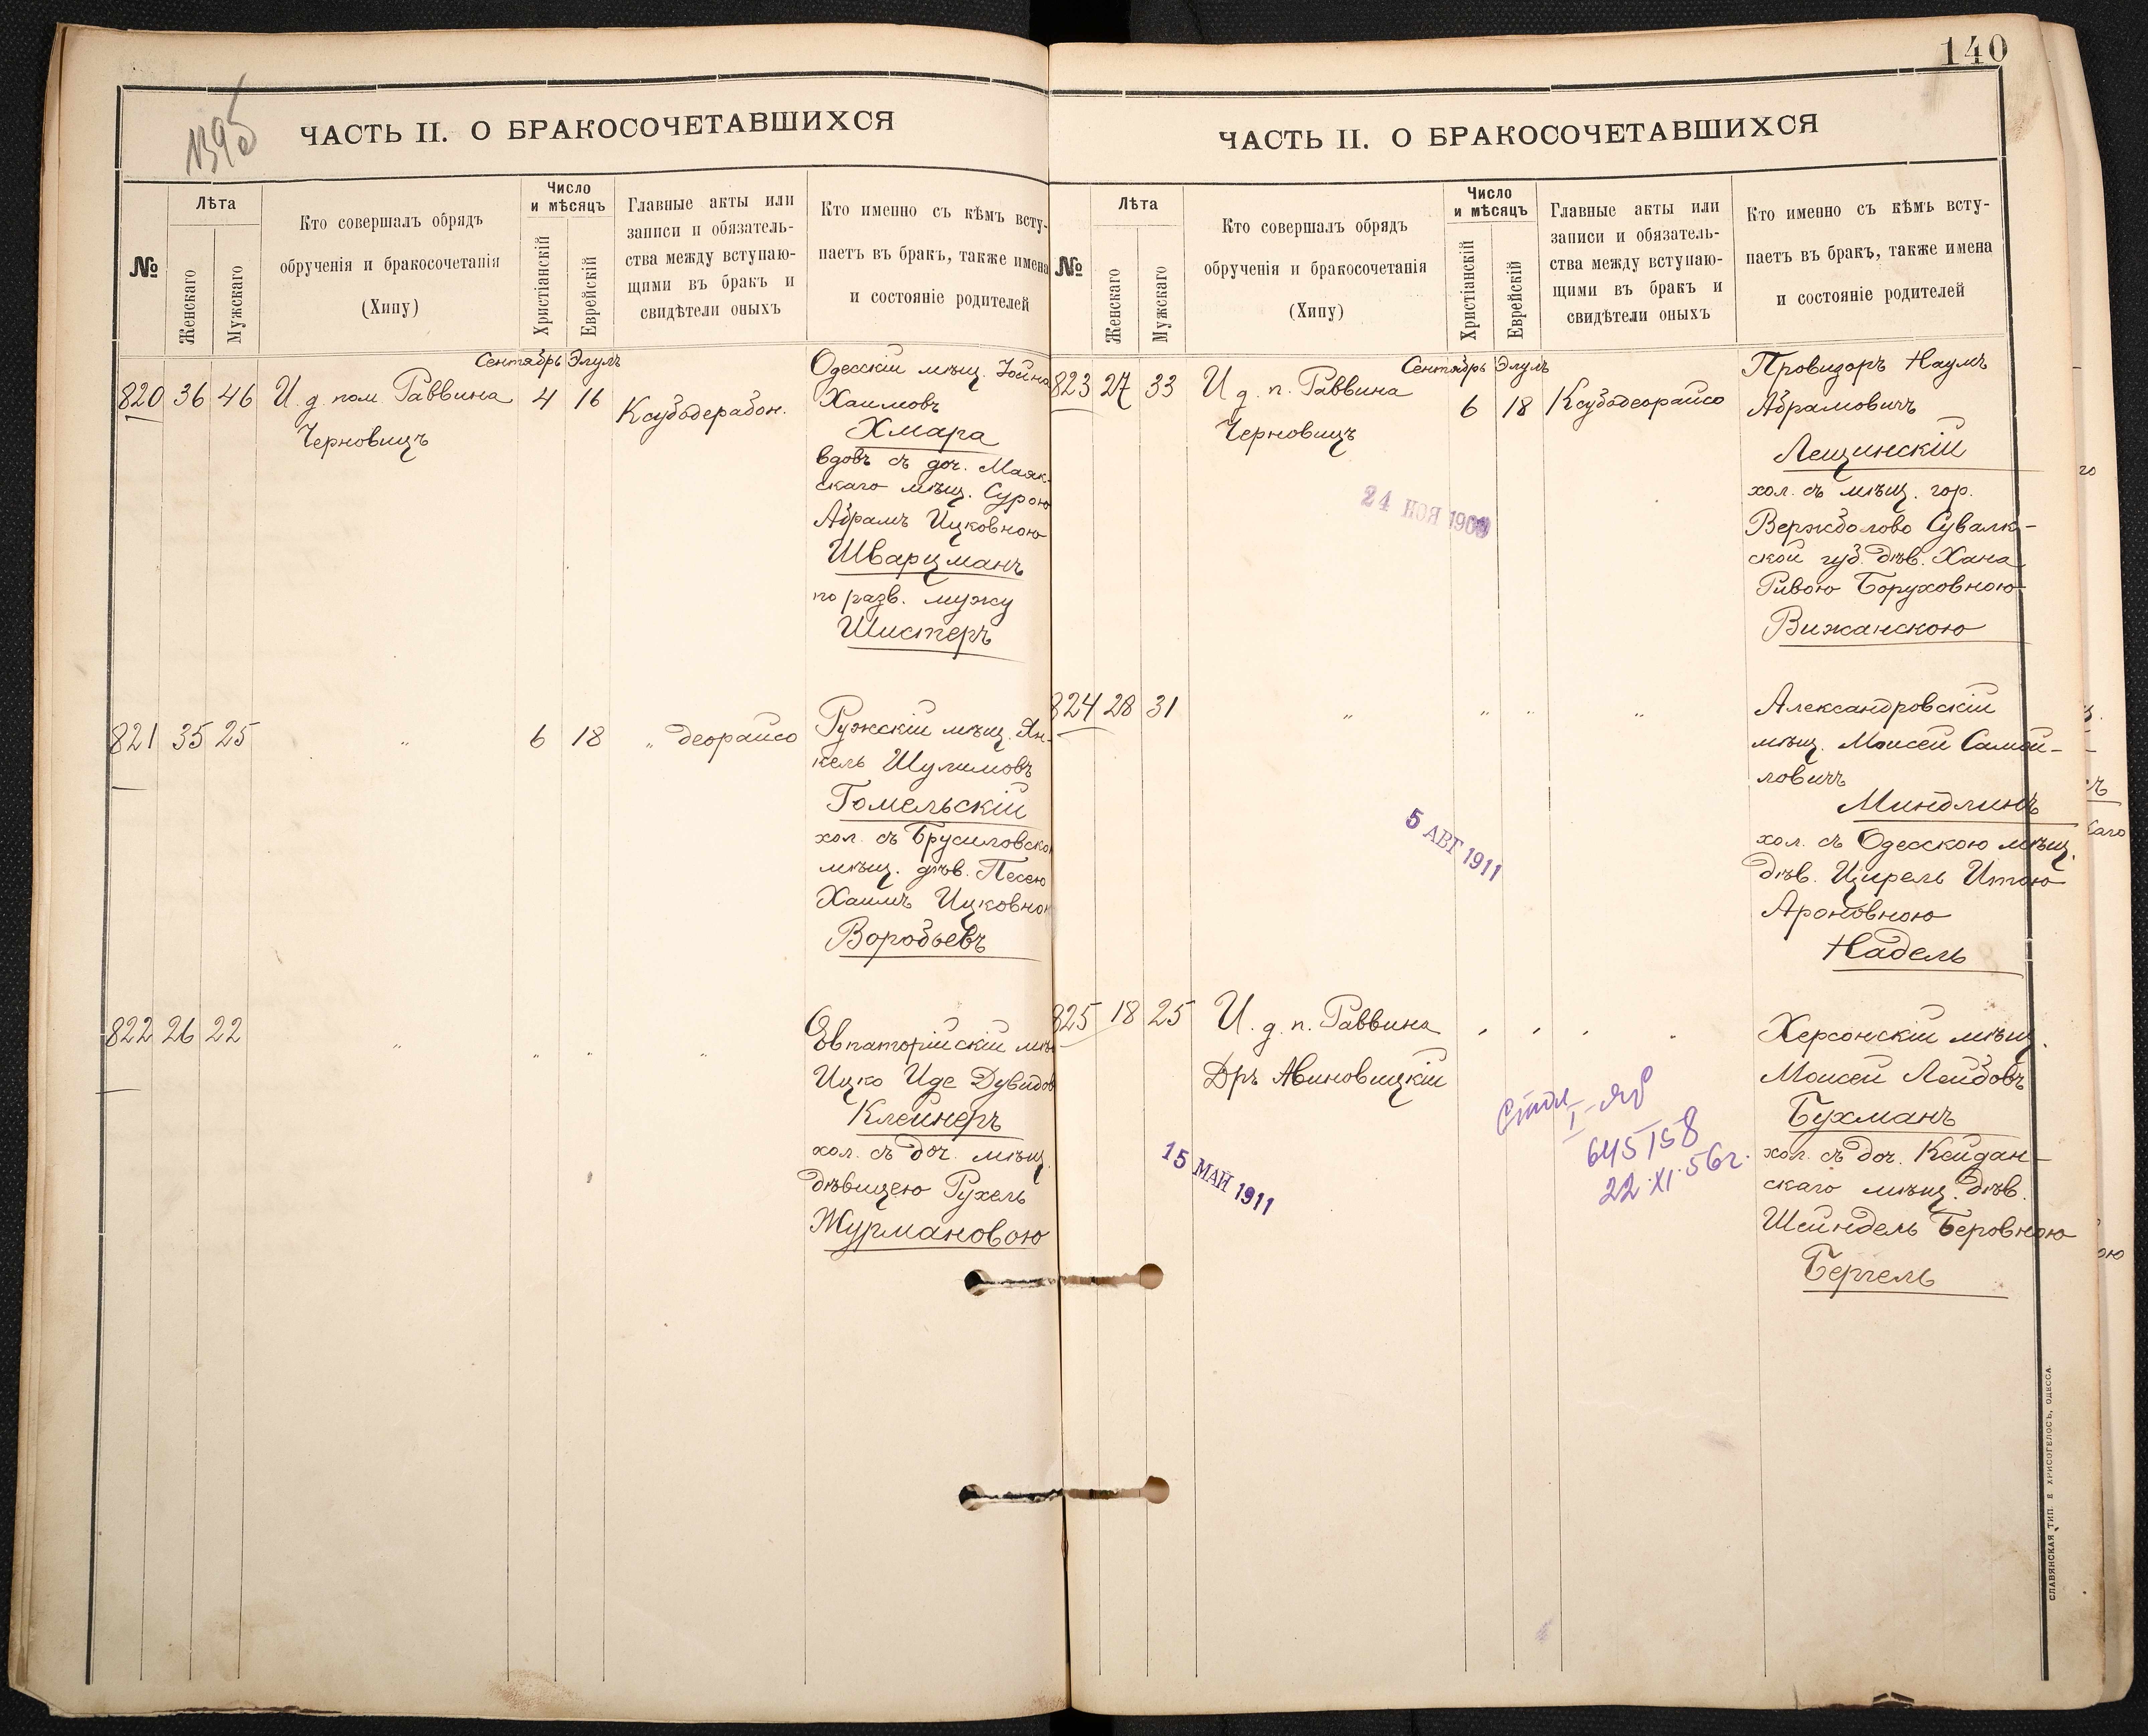 1395
ЧАСТЬ II. О БРАКОСОЧЕТАВШИХСЯ
№
Лѣта
Женскаго
Мужскаго
Кто совершалъ обрядъ
обрученія и бракосочетанія
(Хипу)
Число
и мѣсяцъ
Христіанскій
Еврейскій
Главные акты или
записи и обязатель-
ства между вступаю-
щими въ бракъ и
свидѣтели оныхъ
Кто именно съ кѣмъ всту-
паетъ въ бракъ, также имена
и состояніе родителей
Сентябрь Элулъ
820 36 46 И. д. пом. Раввина 4 16 Ксубодерабон.
Черновицъ
Одесскій мѣщ. Іойна
Хаимовъ
Хмара
вдовъ съ доч. Маяк-
скаго мѣщ. Сурою
Абрамъ Ицковною
Шварцманъ
по разв. мужу
Шистеръ
821 35 25 " 6 18 " деорайсо
Ружскій мѣщ. Ян-
кель Шулимовъ
Гомельскій
хол. съ Брусиловско
мѣщ. дѣв. Песею
Хаимъ Ицковною
Воробьевъ
822 26 22 " " " "
Евпаторійскій мѣщ
Ицко Иде Дувидов
Клейнеръ
хол. съ доч. мѣщ.
дѣвицею Рухель
Журмановою
140
ЧАСТЬ II. О БРАКОСОЧЕТАВШИХСЯ
№
Лѣта
Женскаго
Мужскаго
Кто совершалъ обрядъ
обрученія и бракосочетанія
(Хипу)
Число
и мѣсяцъ
Христіанскій
Еврейскій
Главные акты или
записи и обязатель-
ства между вступаю-
щими въ бракъ и
свидѣтели оныхъ
Кто именно съ кѣмъ всту-
паетъ въ бракъ, также имена
и состояніе родителей
Сентябрь Элулъ
823 27 33 И. д. п. Раввина 6 18 Ксубодеорайсо
Черновицъ
Провизоръ Наумъ
Абрамовичъ
Лещинскій
хол. съ мѣщ. гор.
Вержболово Сувалк-
ской губ. дѣв. Хана
Ривою Боруховною
Вижанскою
24 НОЯ 1909
824 28 31 " " " "
Александровскій
мѣщ. Моисей Самой-
ловичъ
Миндлинъ
хол. съ Одесскою мѣщ.
дѣв. Цирель Итою
Ароновною
Надель
5 АВГ 1911
825 18 25 И. д. п. Раввина
Дръ Авиновицкій
Херсонскій мѣщ.
Моисей Лейбовъ
Бухманъ
хол. съ доч. Кейдан-
скаго мѣщ. дѣв.
Шейндель Беровною
Бергель
15 МАЙ 1911
645158
22.XI.56г.
СЛАВЯНСКАЯ ТИП. Е ХРИСОГЕЛОСЪ, ОДЕССА